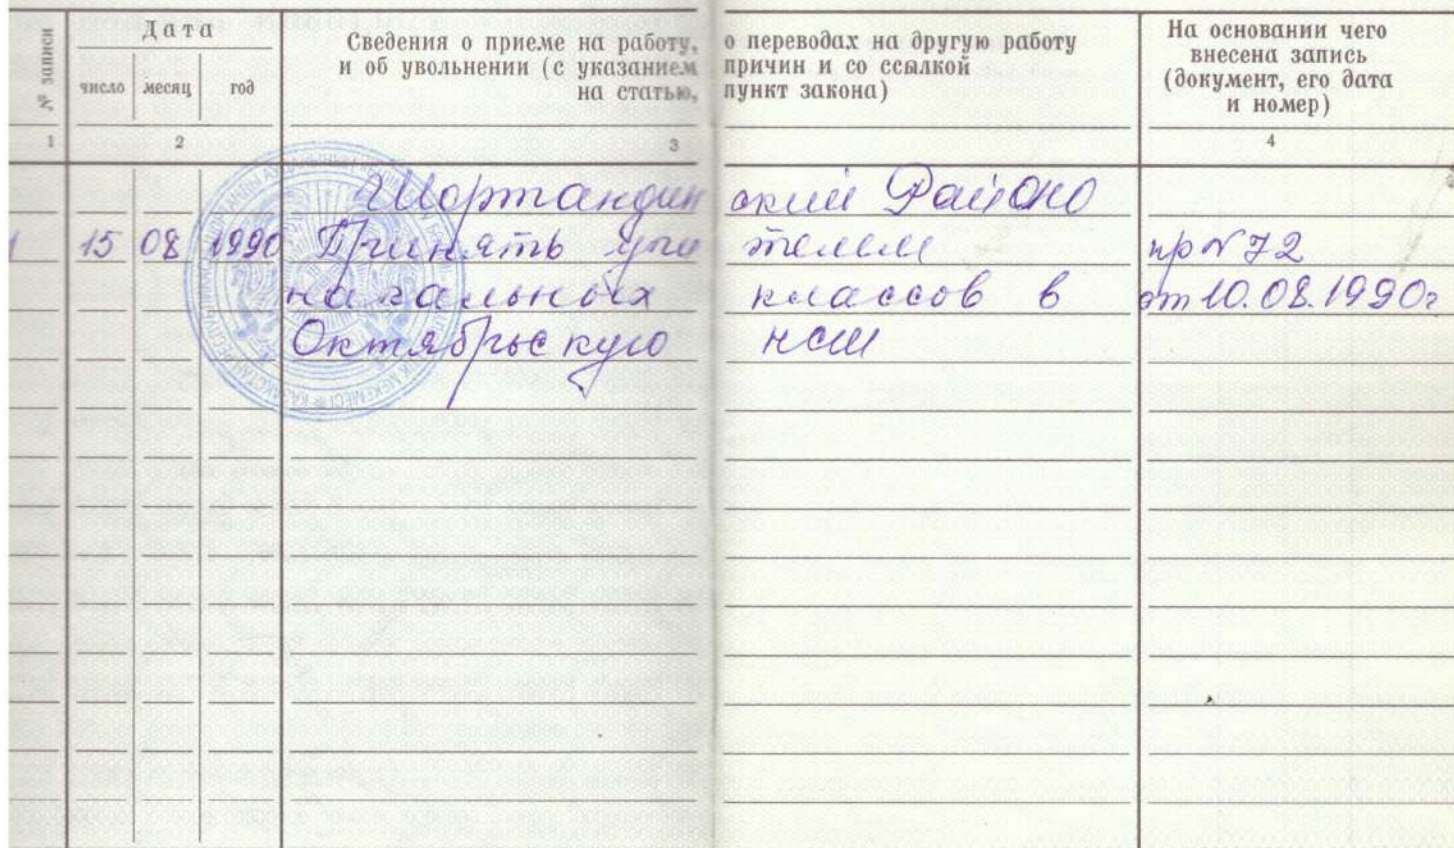 № записи
Дата
число месяц год
Сведения о приеме на работу, о переводах на другую работу
и об увольнении (с указанием причин и со ссылкой
на статью, пункт закона)
На основании чего
внесена запись
(документ, его дата
и номер)
1 2 3 4
Шортандинский РайОНО
1 15 08 1990 Принять учителем пр № 72
начальных классов в от 10.08.1990г
Октябрьскую нсш